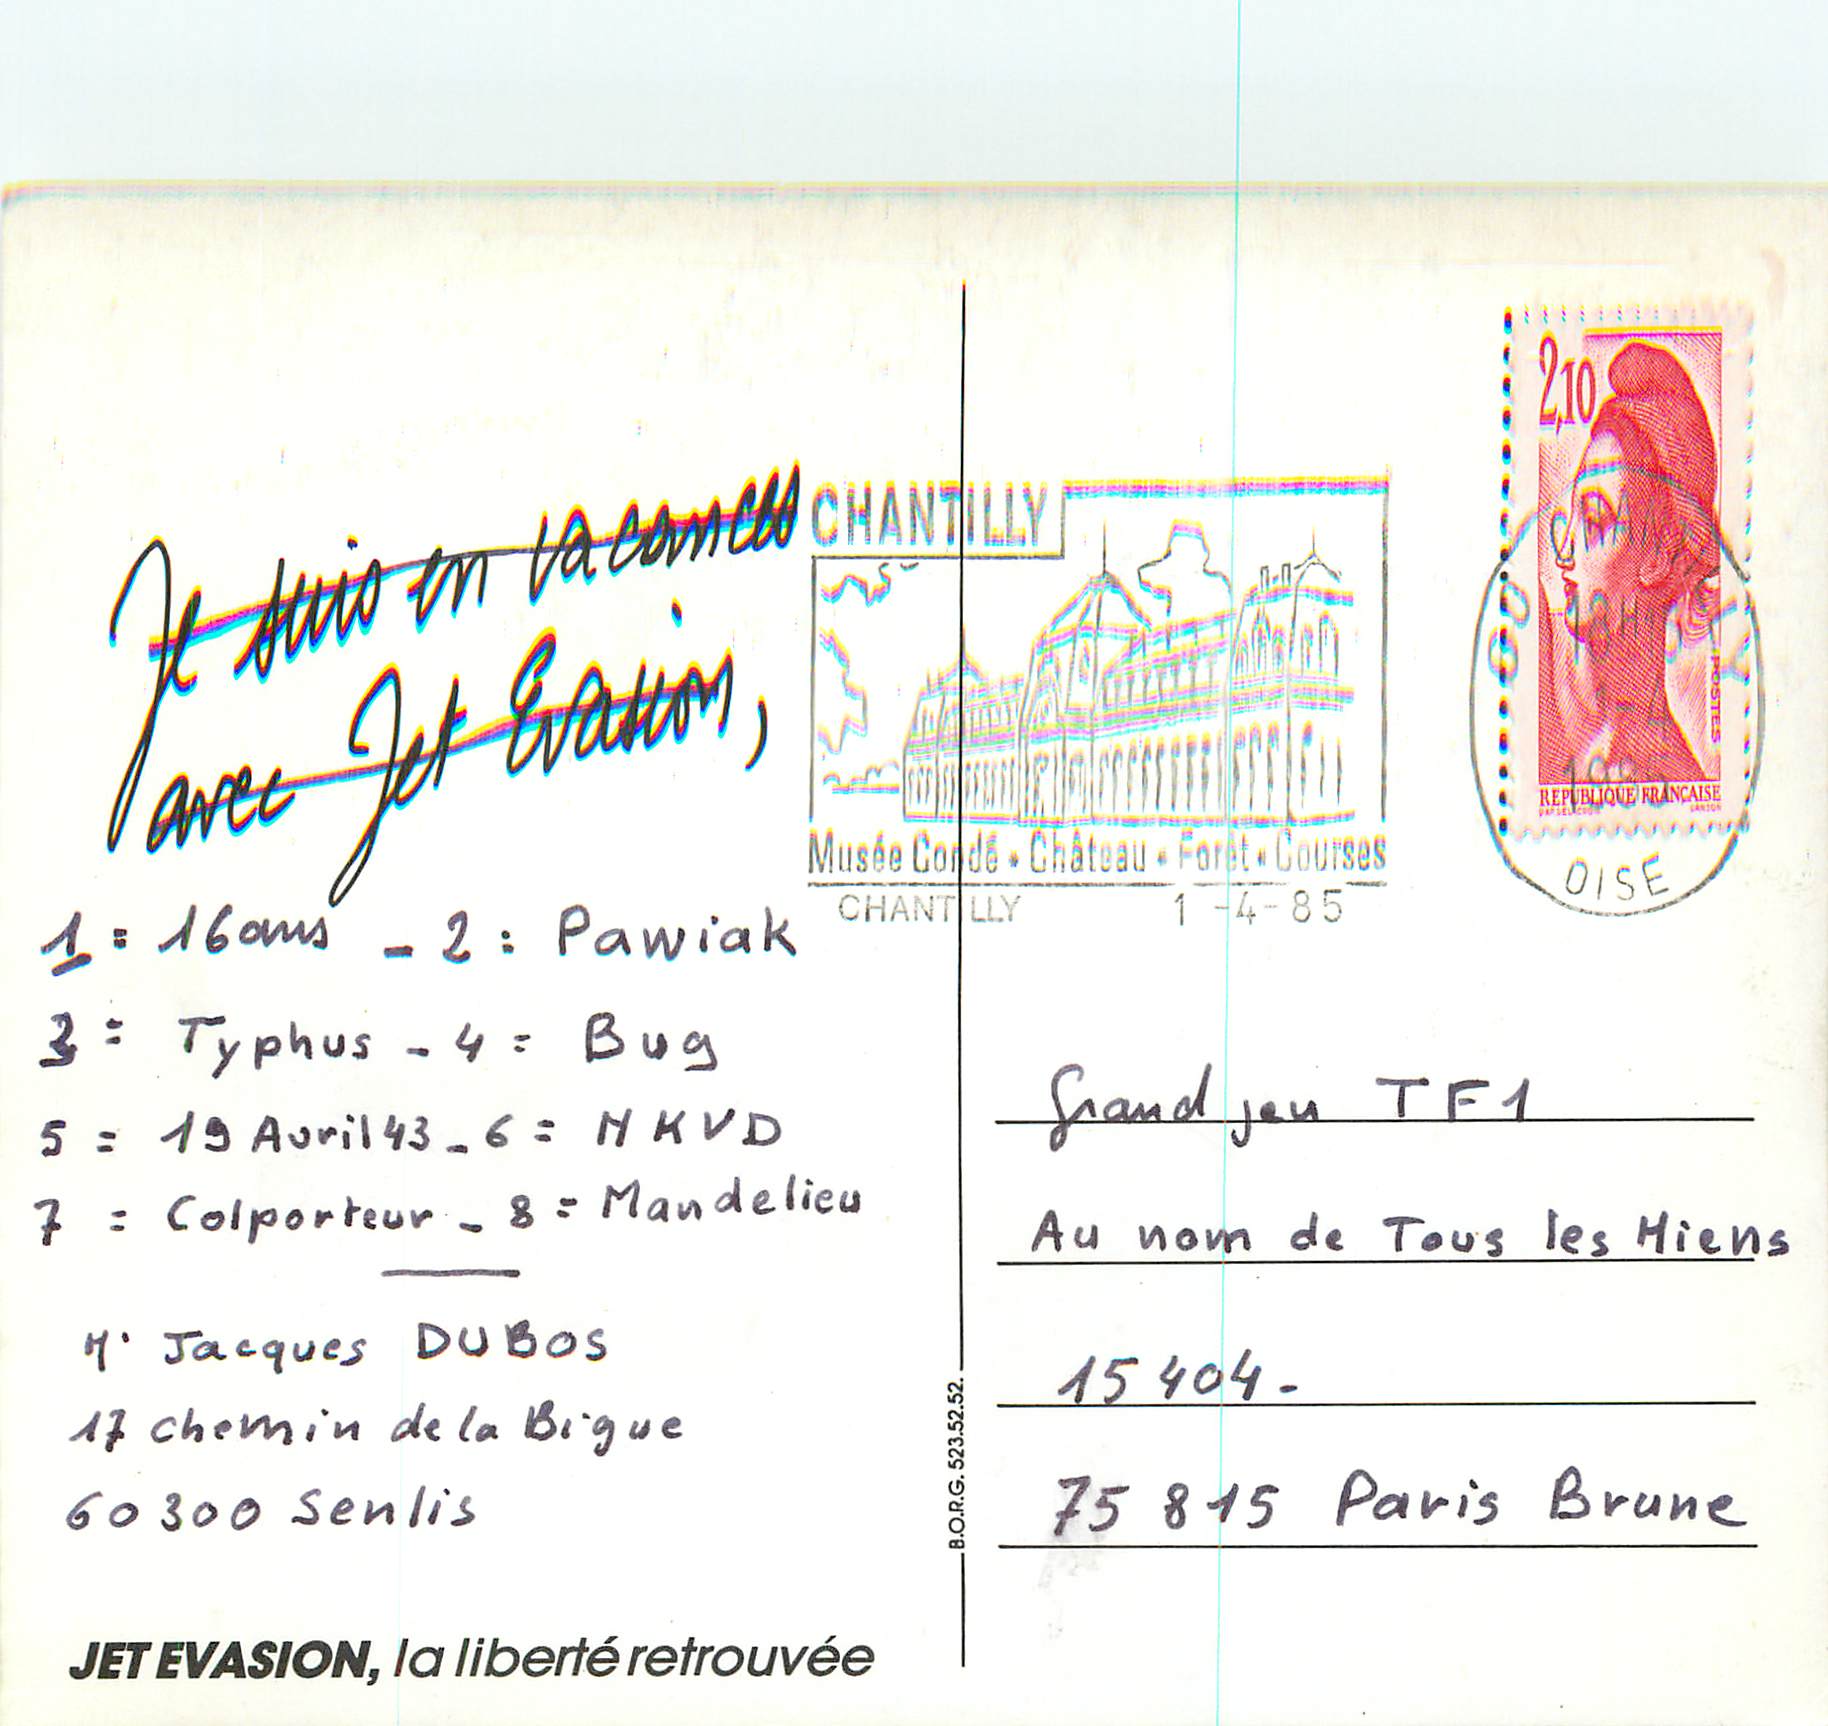 Je suis en vacances
avec Jet Evasion,
1 = 16 ans - 2 : Pawiak
3 = Typhus - 4 = Bug
5 = 19 Avril 43 - 6 = NKVD
7 = Colporteur - 8 = Mandelieu
Mr Jacques DUBOS
17 chemin de la Bigue
60300 Senlis
JET EVASION, la liberté retrouvée
B.O.R.G. 523.52.52.
CHANTILLY
Musée Condé • Château • Forêt • Courses
CHANTILLY 1-4-85
2,10
POSTES
RÉPUBLIQUE FRANÇAISE
60 CHANTILLY
18H
1-4
1985
OISE
Grand jeu TF1
Au nom de Tous les Miens
15 404 -
75 815 Paris Brune